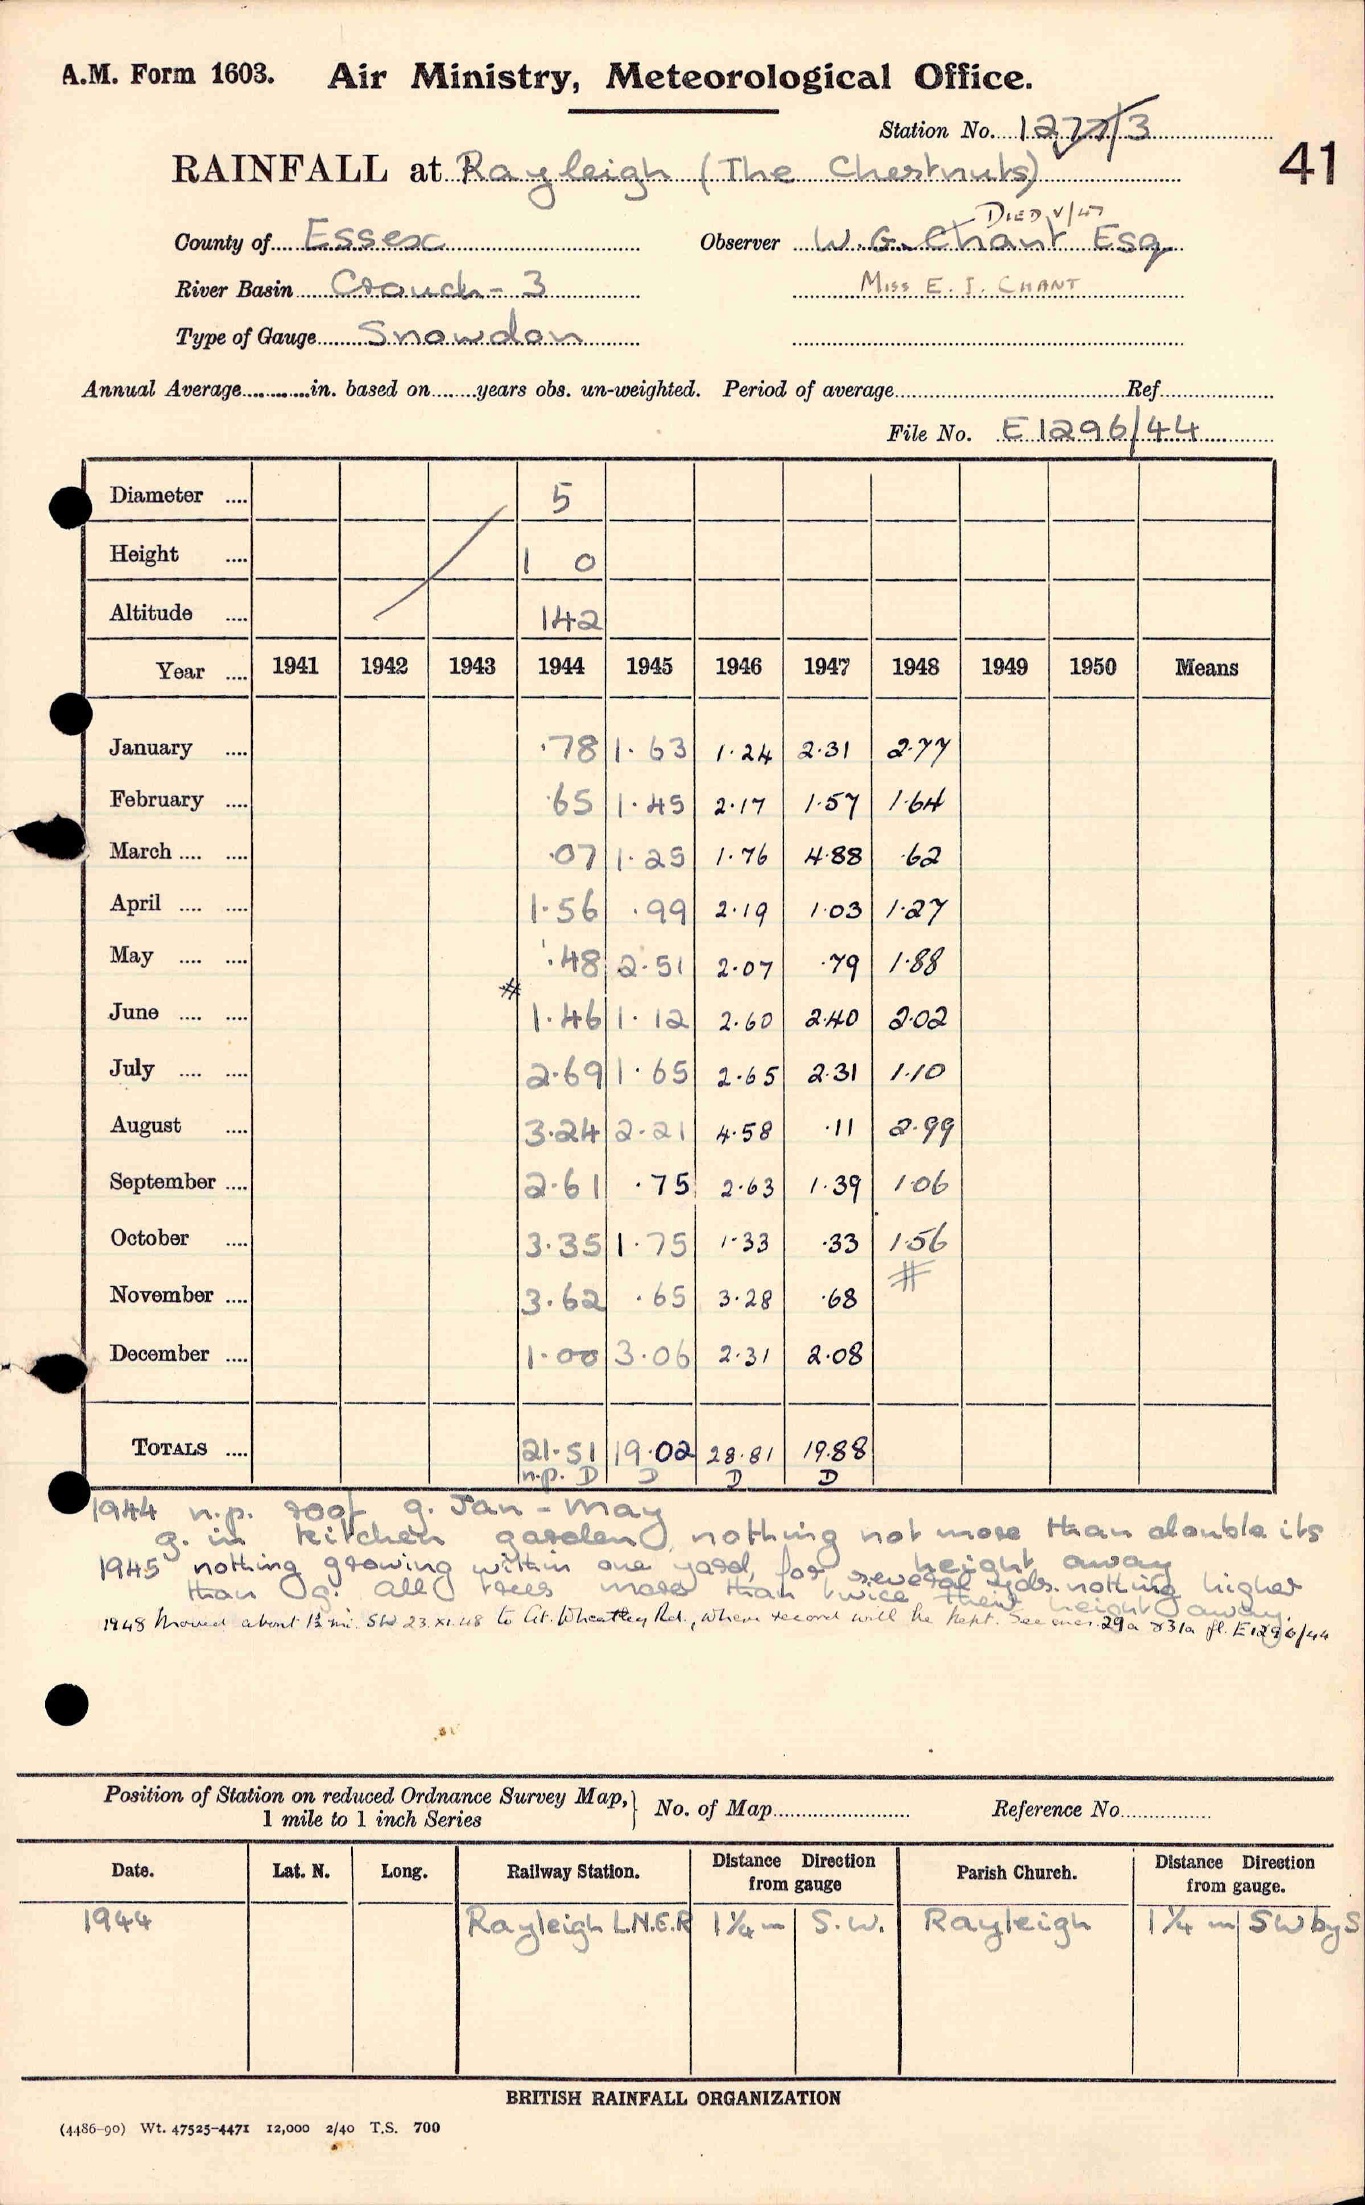 A.M. Form 1603. Air Ministry, Meteorological Office.
Station No. 1277/3
41
RAINFALL at Rayleigh (The Chestnuts)
DIED V/47
County of Essex Observer W. G. Chant Esq
River Basin Crouch - 3 MISS E. I. CHANT
Type of Gauge Snowdon
Annual Average..........in. based on.......years obs. un-weighted. Period of average.......... Ref..........
File No. E1296/44
Diameter .... 5
Height .... 1 0
Altitude .... 142
Year .... 1941 1942 1943 1944 1945 1946 1947 1948 1949 1950 Means
January .... .78 1.63 1.24 2.31 2.77
February .... .65 1.45 2.17 1.57 1.64
March .... .... .07 1.25 1.76 4.88 .62
April .... .... 1.56 .99 2.19 1.03 1.27
May .... .... .48 2.51 2.07 .79 1.88
#
June .... .... 1.46 1.12 2.60 2.40 2.02
July .... .... 2.69 1.65 2.65 2.31 1.10
August .... 3.24 2.21 4.58 .11 2.99
September .... 2.61 .75 2.63 1.39 1.06
October .... 3.35 1.75 1.33 .33 1.56
#
November .... 3.62 .65 3.28 .68
December .... 1.00 3.06 2.31 2.08
TOTALS .... 21.51 19.02 28.81 19.88
n.p. D D D D
1944 n.p. roof g. Jan - May
g. in kitchen garden, nothing not more than double its height away
1945 nothing growing within one yard, for several yds. nothing higher
than g. all trees more than twice their height away.
1948 Moved about 1½ mi. SW 23.XI.48 to Gt. Wheatley Rd., where record will be kept. See 29a & 31a fl. E1296/44
Position of Station on reduced Ordnance Survey Map, 1 mile to 1 inch Series } No. of Map.......... Reference No..........
Date. Lat. N. Long. Railway Station. Distance Direction from gauge Parish Church. Distance Direction from gauge.
1944 Rayleigh L.N.E.R 1¼ m S.W. Rayleigh 1¼ m SW by S
BRITISH RAINFALL ORGANIZATION
(4486-90) Wt. 47525-4471 12,000 2/40 T.S. 700